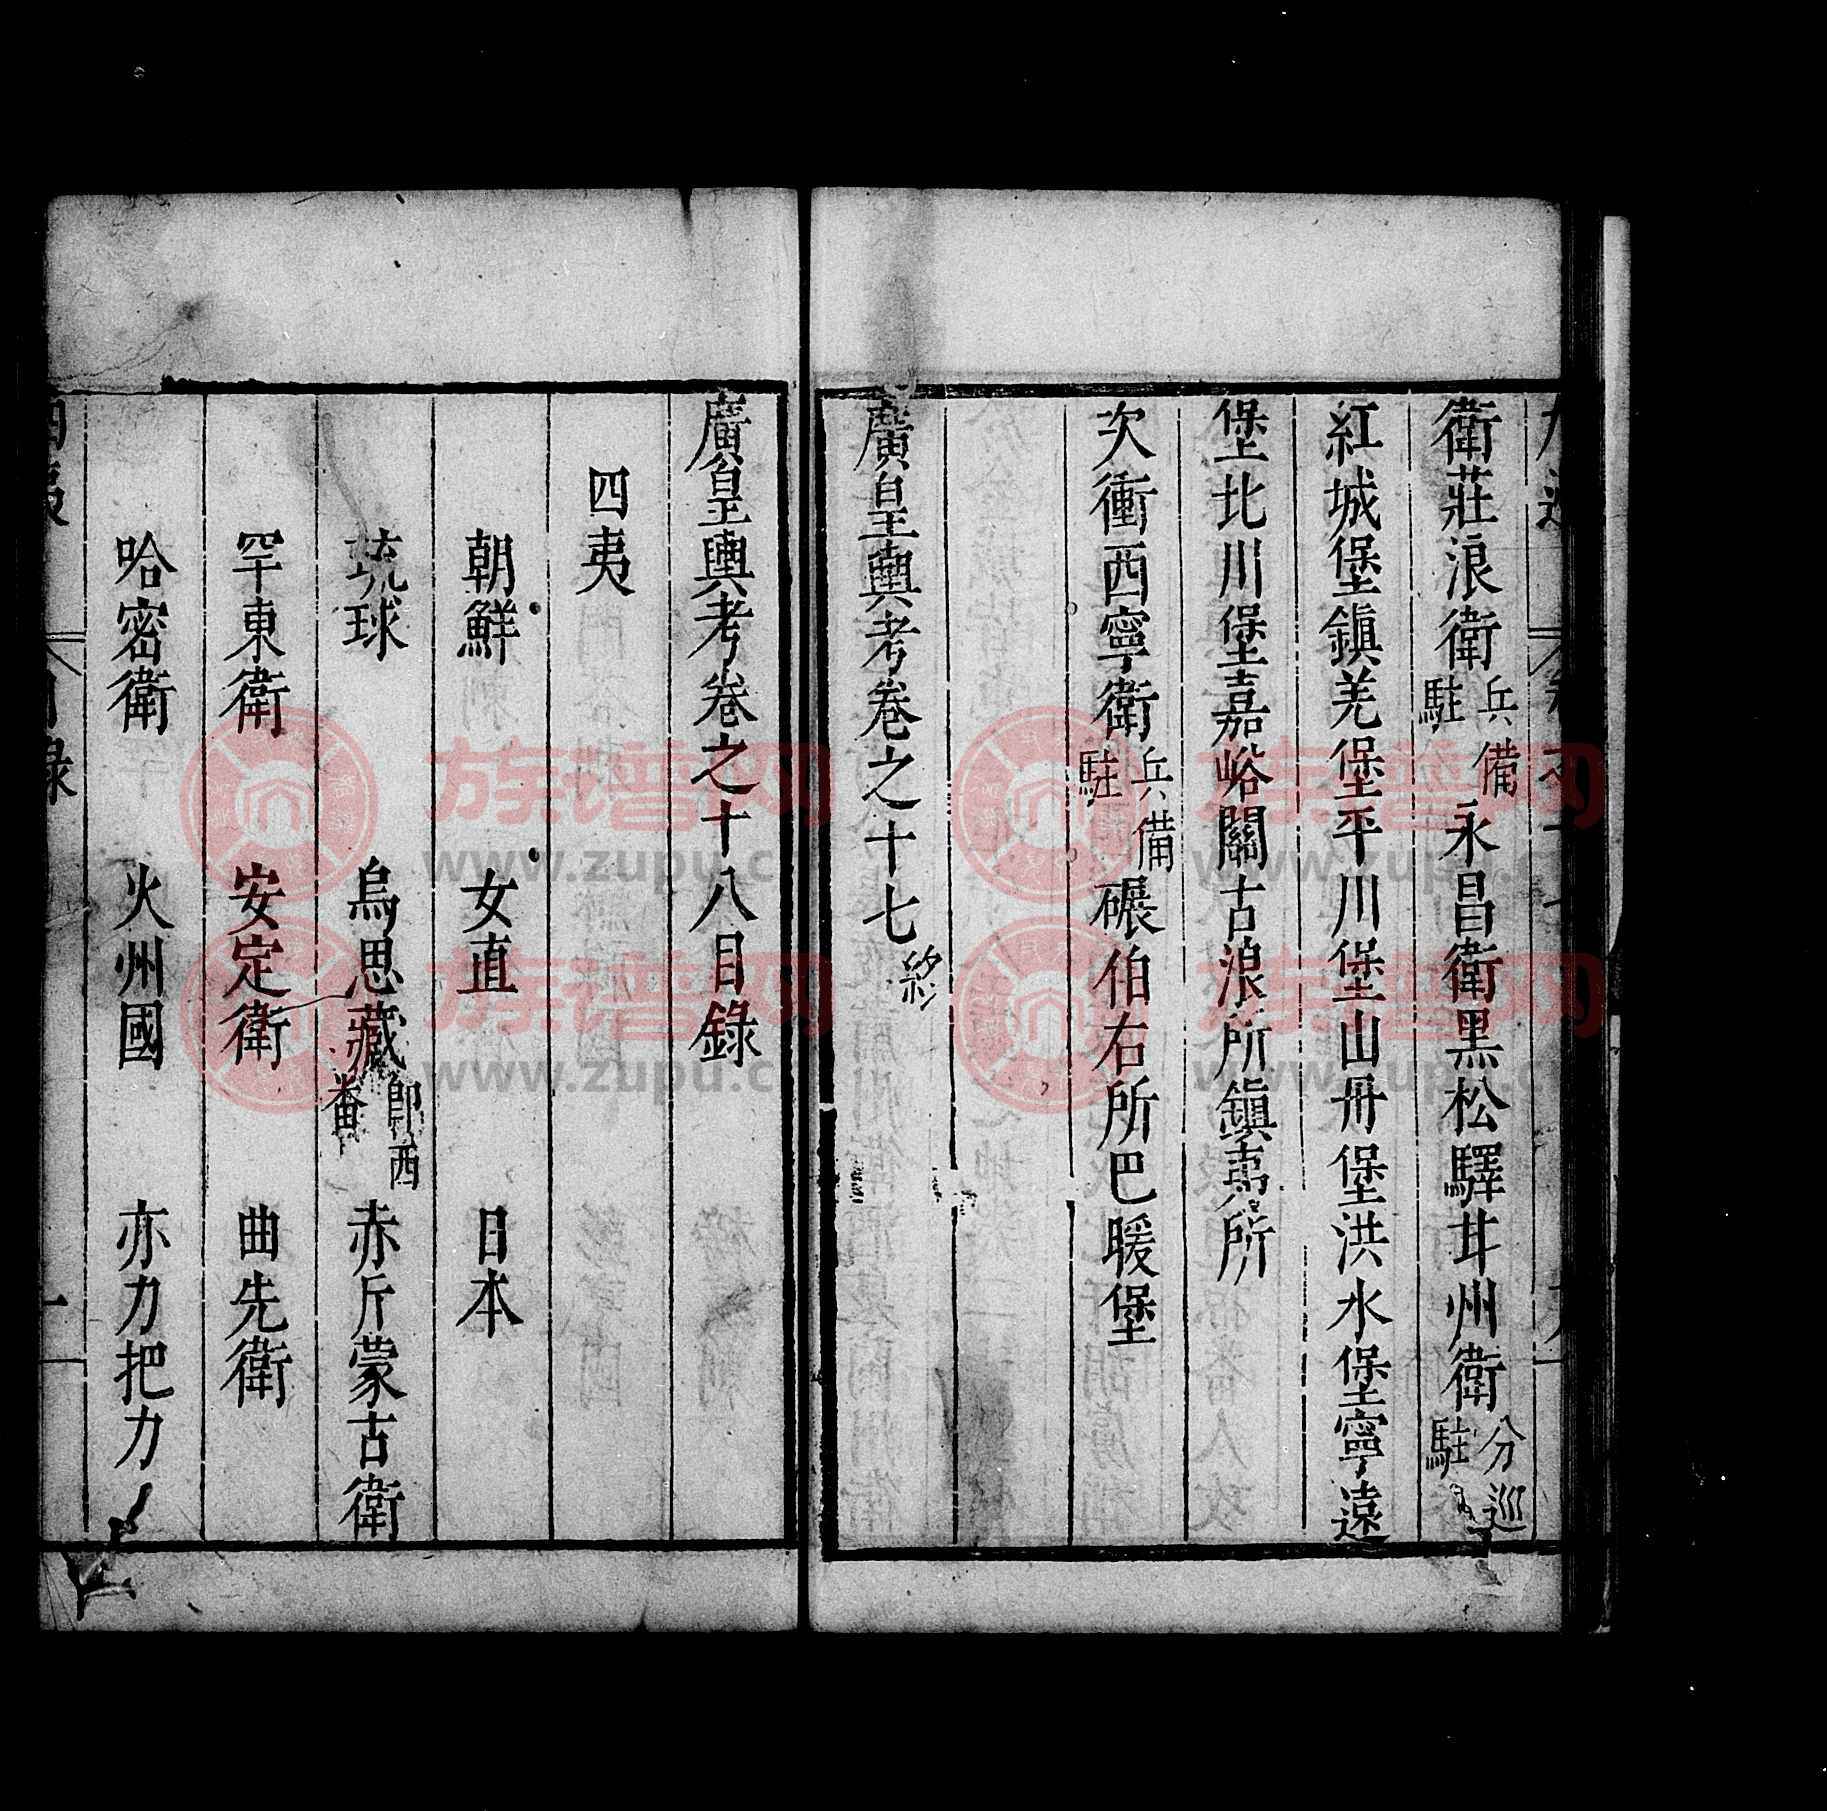 衛莊浪衛兵備駐永昌衛黑松驛甘州衛分巡駐
紅城堡鎮羌堡平川堡山丹堡洪水堡寧遠
堡北川堡嘉峪關古浪所鎮夷所
次衝西寧衛兵備駐碾伯右所巴暖堡
廣皇輿考卷之十七終
廣皇輿考卷之十八目錄
四夷
朝鮮 女直 日本
琉球 烏思藏即西番 赤斤蒙古衛
罕東衛 安定衛 曲先衛
哈密衛 火州國 亦力把力
族譜网
www.zupu.c
族譜网
www.zupu.c
族譜网
www.zupu.c
族譜网
www.zupu.c